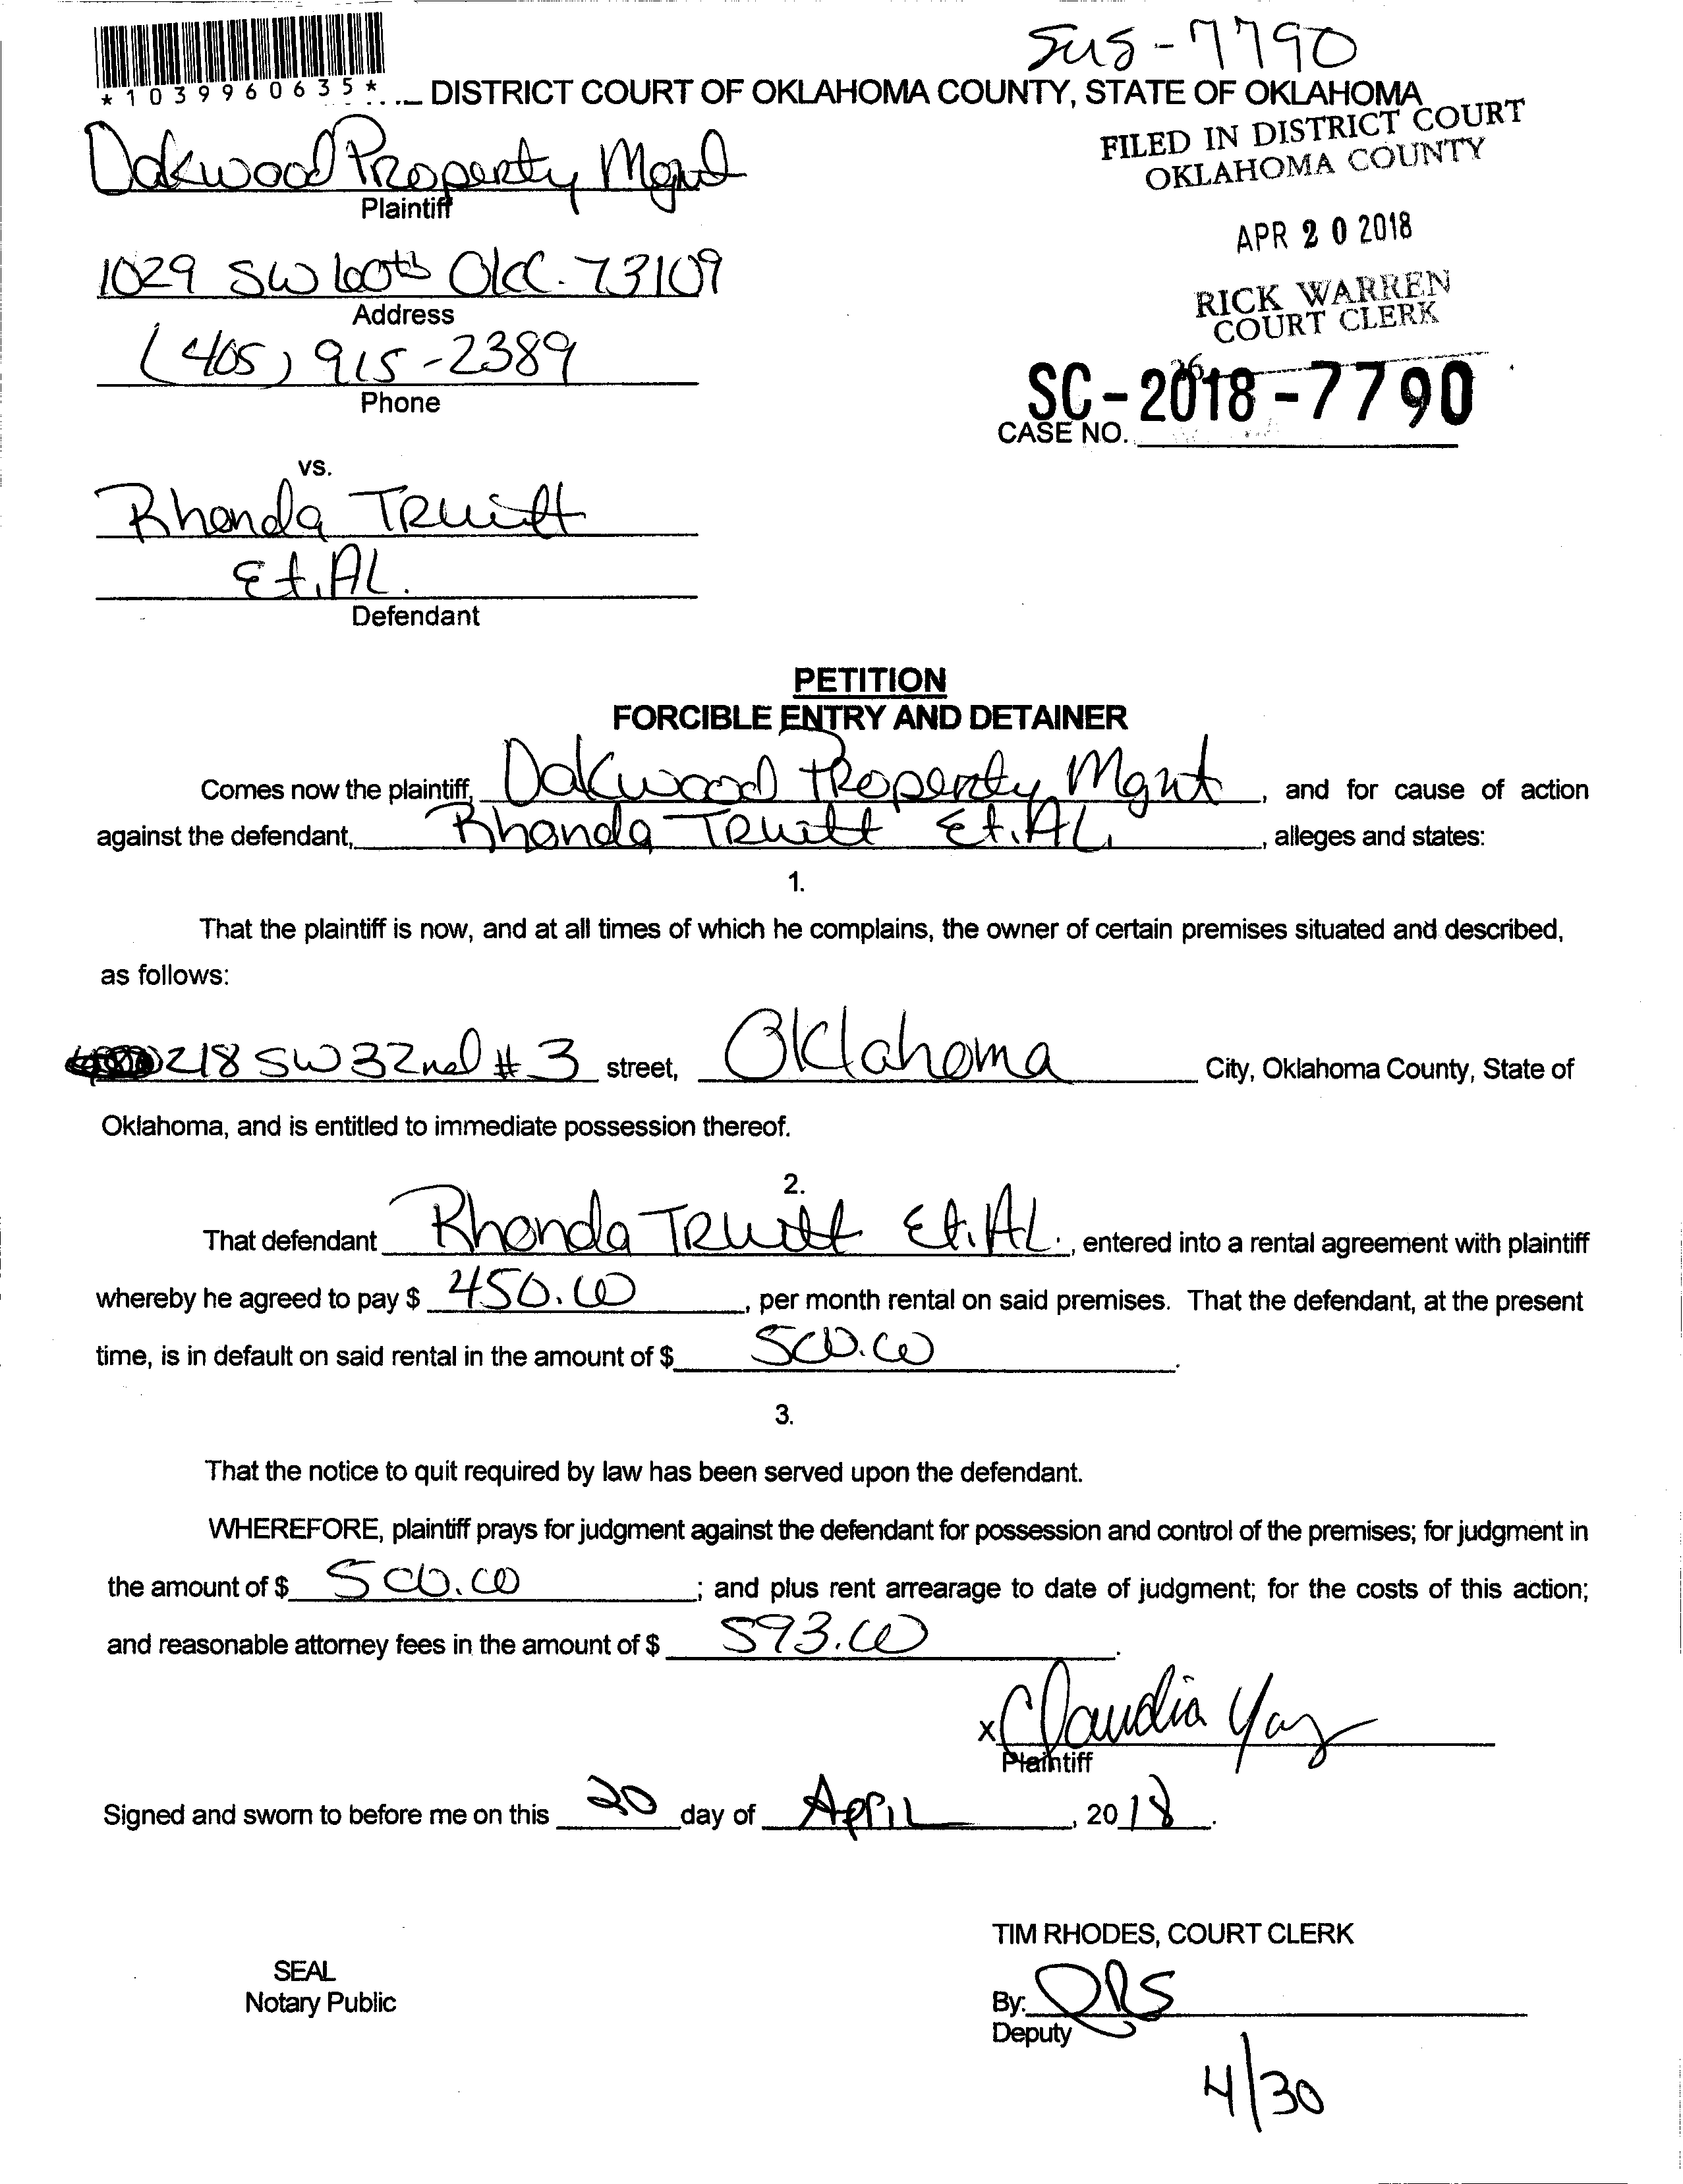 SC18-7790
*1039960635*
DISTRICT COURT OF OKLAHOMA COUNTY, STATE OF OKLAHOMA
FILED IN DISTRICT COURT
OKLAHOMA COUNTY
Oakwood Property Mgmt
Plaintiff
APR 20 2018
1029 SW 60th OKC. 73109
Address
RICK WARREN
COURT CLERK
(405) 915-2389
Phone
SC-2018-7790
CASE NO.
vs.
Rhonda Truitt
Et. AL.
Defendant
PETITION
FORCIBLE ENTRY AND DETAINER
Comes now the plaintiff, Oakwood Property Mgnt, and for cause of action
against the defendant, Rhonda Truitt Et. AL, alleges and states:
1.
That the plaintiff is now, and at all times of which he complains, the owner of certain premises situated and described,
as follows:
218 SW 32nd # 3 street, Oklahoma City, Oklahoma County, State of
Oklahoma, and is entitled to immediate possession thereof.
2.
That defendant Rhonda Truitt Et. AL., entered into a rental agreement with plaintiff
whereby he agreed to pay $ 450.00, per month rental on said premises. That the defendant, at the present
time, is in default on said rental in the amount of $ 500.00.
3.
That the notice to quit required by law has been served upon the defendant.
WHEREFORE, plaintiff prays for judgment against the defendant for possession and control of the premises; for judgment in
the amount of $ 500.00; and plus rent arrearage to date of judgment; for the costs of this action;
and reasonable attorney fees in the amount of $ 593.00.
x Claudia Yaz
Plaintiff
Signed and sworn to before me on this 20 day of April, 2018.
TIM RHODES, COURT CLERK
SEAL
Notary Public
By:
Deputy
4/30